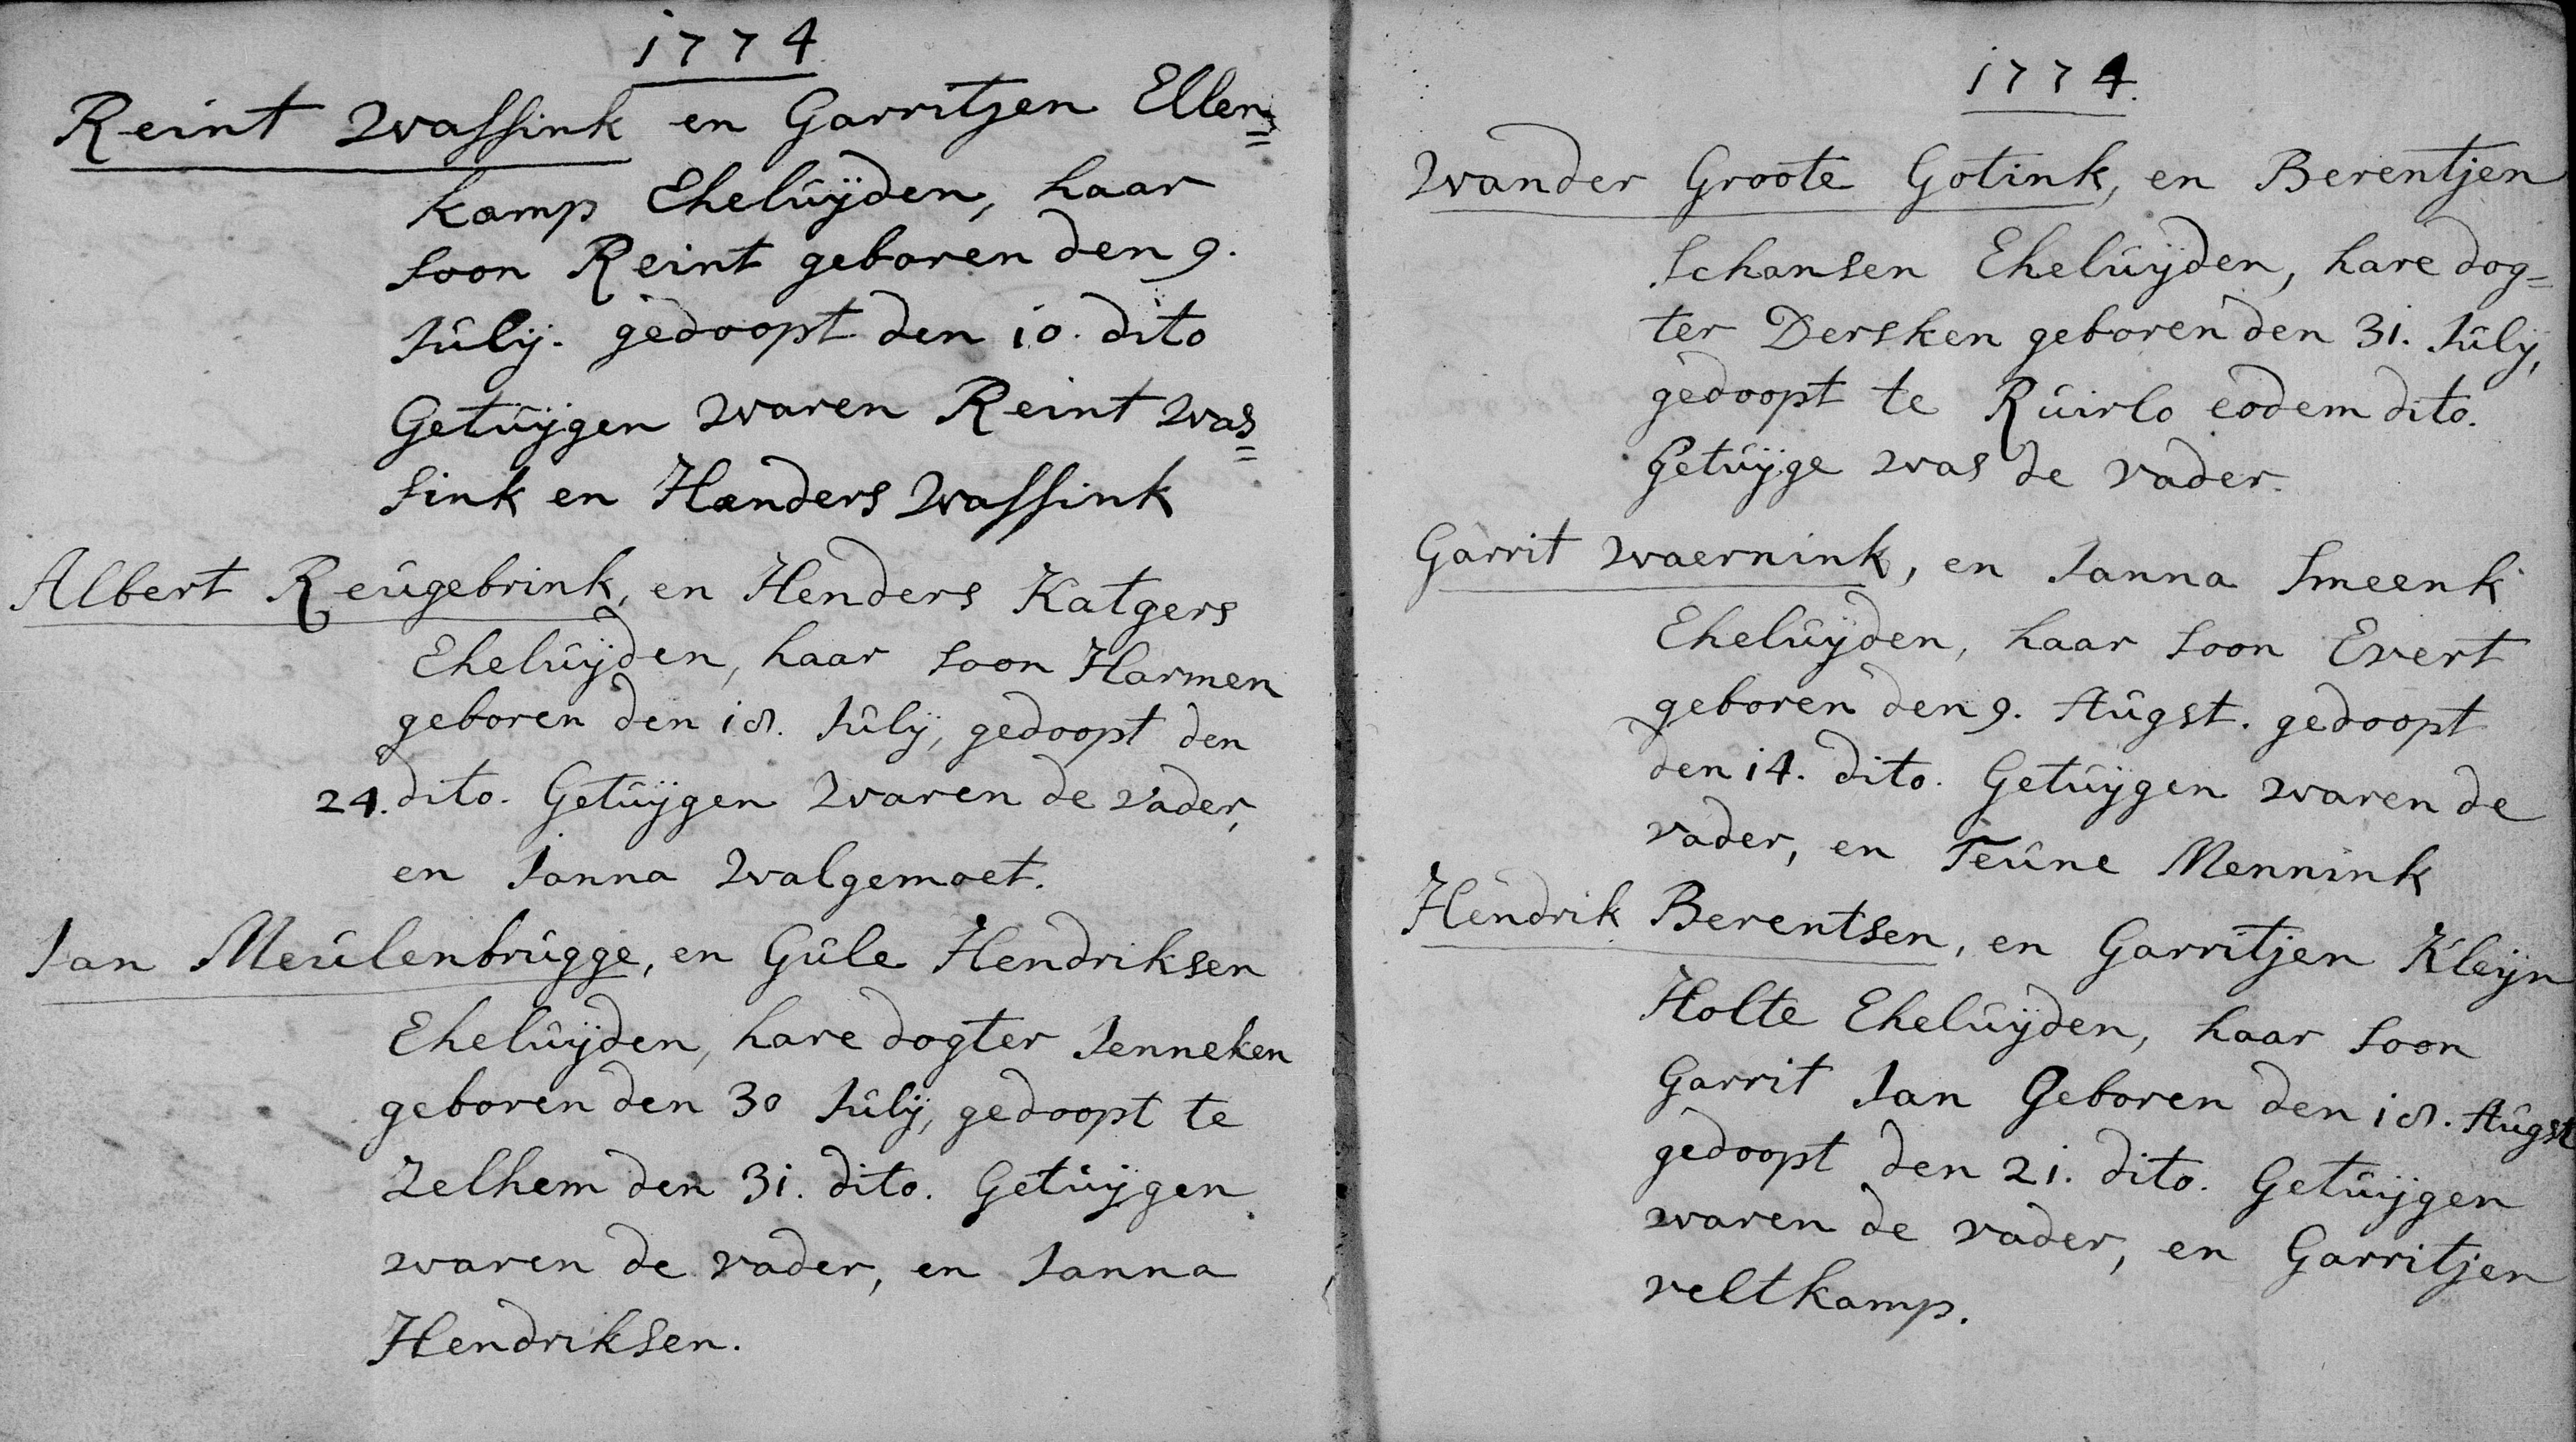 1774
Reint Wassink en Garritjen Ellen=
kamp Ehelûyden, haar
soon Reint geboren den 9.
Jûlÿ. gedoopt den 10. dito
Getûÿgen waren Reint Was=
sink en Handers Wassink
Albert Reûgebrink, en Henders Katgers
Ehelûÿden, haar soon Harmen
geboren den 18. Jûlÿ, gedoopt den
24. dito. Getûÿgen Waren de Vader,
en Janna Walgemoet.
Jan Meûlenbrûgge, en Gûle Hendriksen
Ehelûÿden, hare dogter Jenneken
geboren den 30 Jûlÿ, gedoopt te
Zelhem den 31. dito. Getûÿgen
waren de vader, en Janna
Hendriksen.
1774.
Wander Groote Gotink, en Berentjen
Schansen Ehelûÿden, hare dog=
ter Dersken geboren den 31. Jûlÿ,
gedoopt te Rûirlo eodem dito.
Getûÿge was de vader.
Garrit Waernink, en Janna Smeenk
Ehelûÿden, haar soon Evert
geboren den 9. Aûgst. gedoopt
den 14. dito. Getûÿgen waren de
vader, en Teûne Mennink
Hendrik Berentsen, en Garritjen Kleÿn
Holte Ehelûÿden, haar soon
Garrit Jan Geboren den 18. Aûgst
gedoopt den 21. dito. Getûÿgen
waren de vader, en Garritjen
veltkamp.